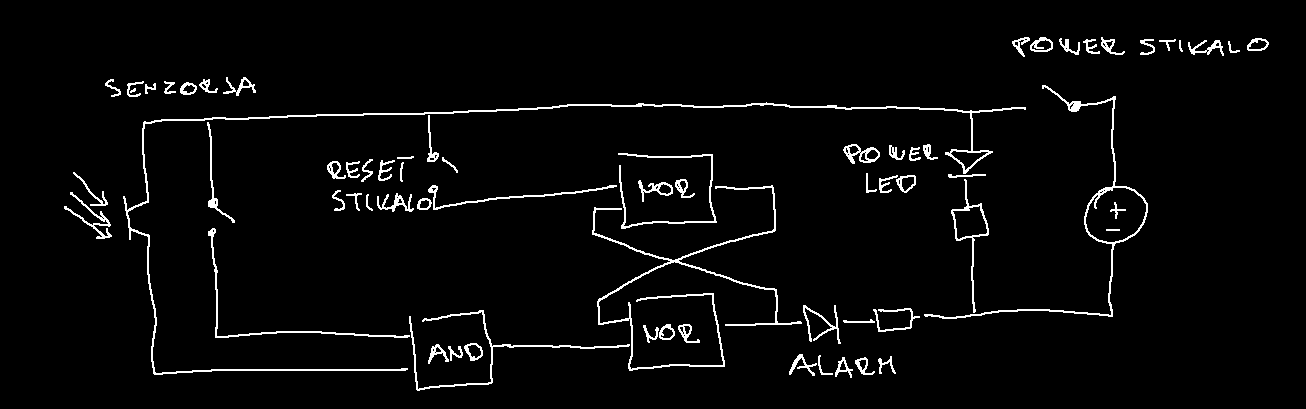 POWER STIKALO
SENZORJA
RESET
STIKALO
NOR
POWER
LED
+
-
AND
NOR
ALARM